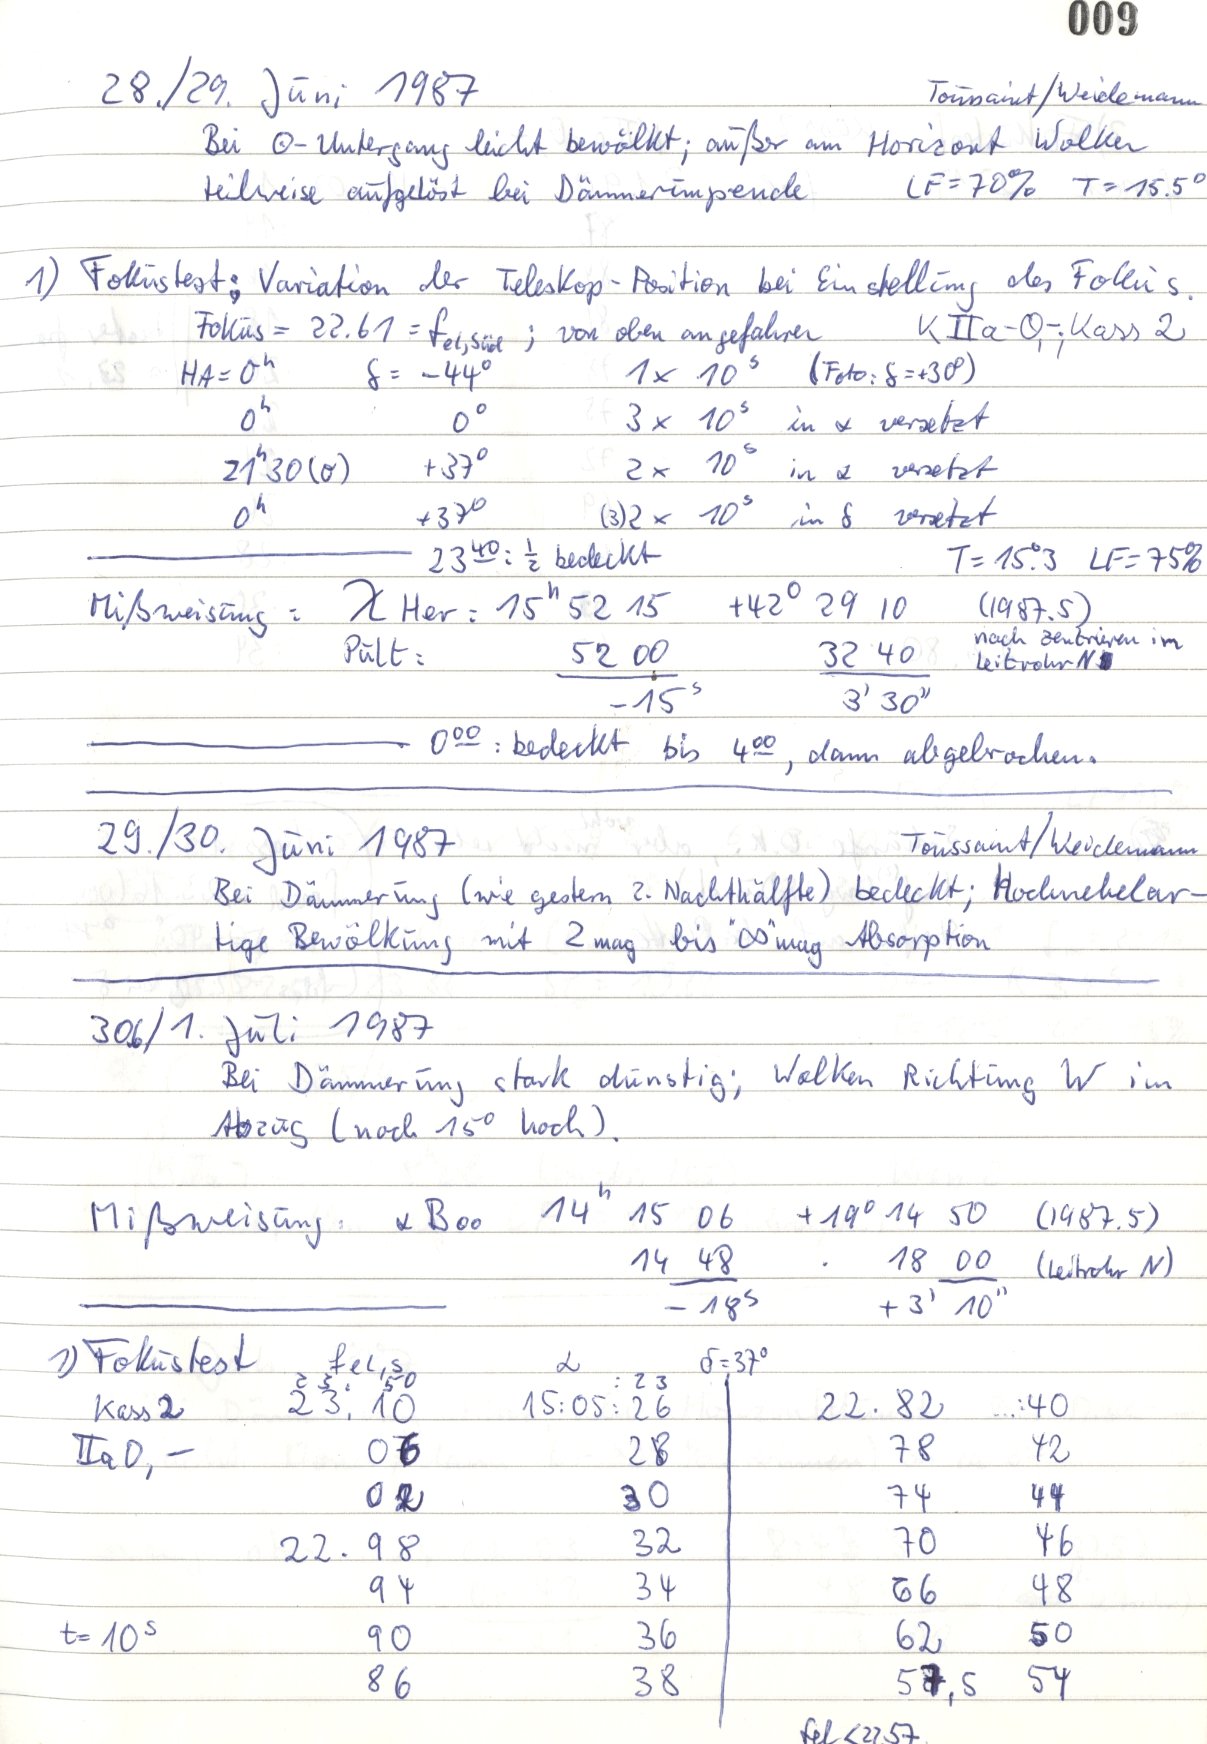 009
28./29. Juni 1987 Toussaint/Weidemann
Bei ⊙-Untergang leicht bewölkt; außer am Horizont Wolken
teilweise aufgelöst bei Dämmerungsende LF=70% T=15.5°
1) Fokustest; Variation der Teleskop-Position bei Einstellung des Fokus.
Fokus = 22.61 = f_el,Süd ; von oben angefahren K IIa-O,-; Kass 2
HA = 0h δ = -44° 1x 10s (Foto: δ=+30°)
0h 0° 3x 10s in α versetzt
21h30(σ) +37° 2x 10s in α versetzt
0h +37° (3)2x 10s in δ versetzt
23 40: ½ bedeckt T=15.°3 LF=75%
Mißweisung: χ Her: 15h 52 15 +42° 29 10 (1987.5)
Pult: 52 00 32 40 nach zentrieren im
Leitrohr N
-15s 3' 30"
0 00: bedeckt bis 4 00, dann abgebrochen.
29./30. Juni 1987 Toussaint/Weidemann
Bei Dämmerung (wie gestern 2. Nachthälfte) bedeckt; Hochnebelar-
tige Bewölkung mit 2 mag bis "∞" mag Absorption
30.6/1. Juli 1987
Bei Dämmerung stark dunstig; Wolken Richtung W im
Abzug (noch 15° hoch).
Mißweisung: α Boo 14h 15 06 +19° 14 50 (1987.5)
14 48 18 00 (Leitrohr N)
-18s +3' 10"
1) Fokustest f el,s α δ=37°
23. 50 : 23
Kass 2 23. 10 15:05:26 22.82 ...:40
IIa O,- 06 28 78 42
02 30 74 44
22.98 32 70 46
94 34 66 48
t=10s 90 36 62 50
86 38 57,5 54
fel < 22.57